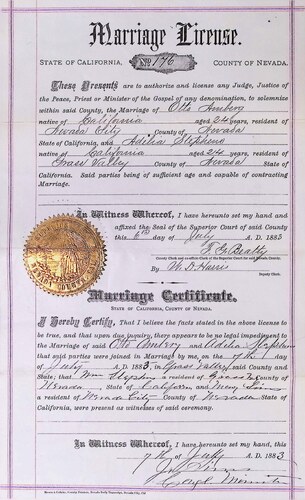 Marriage License.
STATE OF CALIFORNIA, No. 176 COUNTY OF NEVADA.
These Presents are to authorize and license any Judge, Justice of
the Peace, Priest or Minister of the Gospel of any denomination, to solemnize
within said County, the Marriage of Otto
native of California aged 24 years, resident of
Nevada City County of Nevada
State of California, and Adelia Stephens
native of California aged 24 years, resident of
Grass Valley County of Nevada State of
California. Said parties being of sufficient age and capable of contracting
Marriage.
In Witness Whereof, I have hereunto set my hand and
affixed the Seal of the Superior Court of said County
this 6th day of July A. D. 1883
Beatty
By W. D. Harris
Deputy Clerk.
Marriage Certificate.
STATE OF CALIFORNIA, COUNTY OF NEVADA.
I Hereby Certify, That I believe the facts stated in the above license to
be true, and that upon due inquiry, there appears to be no legal impediment to
the Marriage of said Otto and Adelia Stephens
that said parties were joined in Marriage by me, on the 7th day
of July A. D. 1883, in Grass Valley, said County and
State; that Wm Stephens a resident of Grass V. County of
Nevada, State of California and Mary
a resident of Nevada City County of Nevada State of
California, were present as witnesses of said ceremony.
In Witness Whereof, I have hereunto set my hand, this
7th day of July A. D. 1883